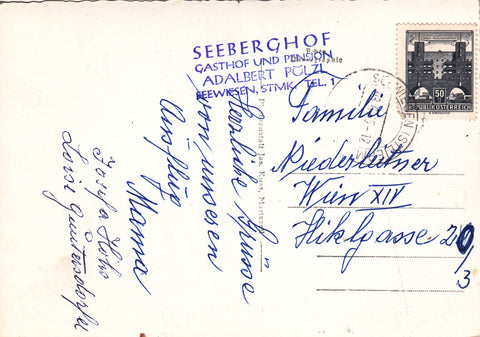 SEEBERGHOF
GASTHOF UND PENSION
ADALBERT PÖLZL
SEEWIESEN, STMK. TEL. 1
Herzliche Grüsse
von unserem
Ausflug
Mama
Josefa
Loisi
50
REPUBLIK ÖSTERREICH
Familie
Niederleitner
Wien XIV
Hiklgasse 20/3